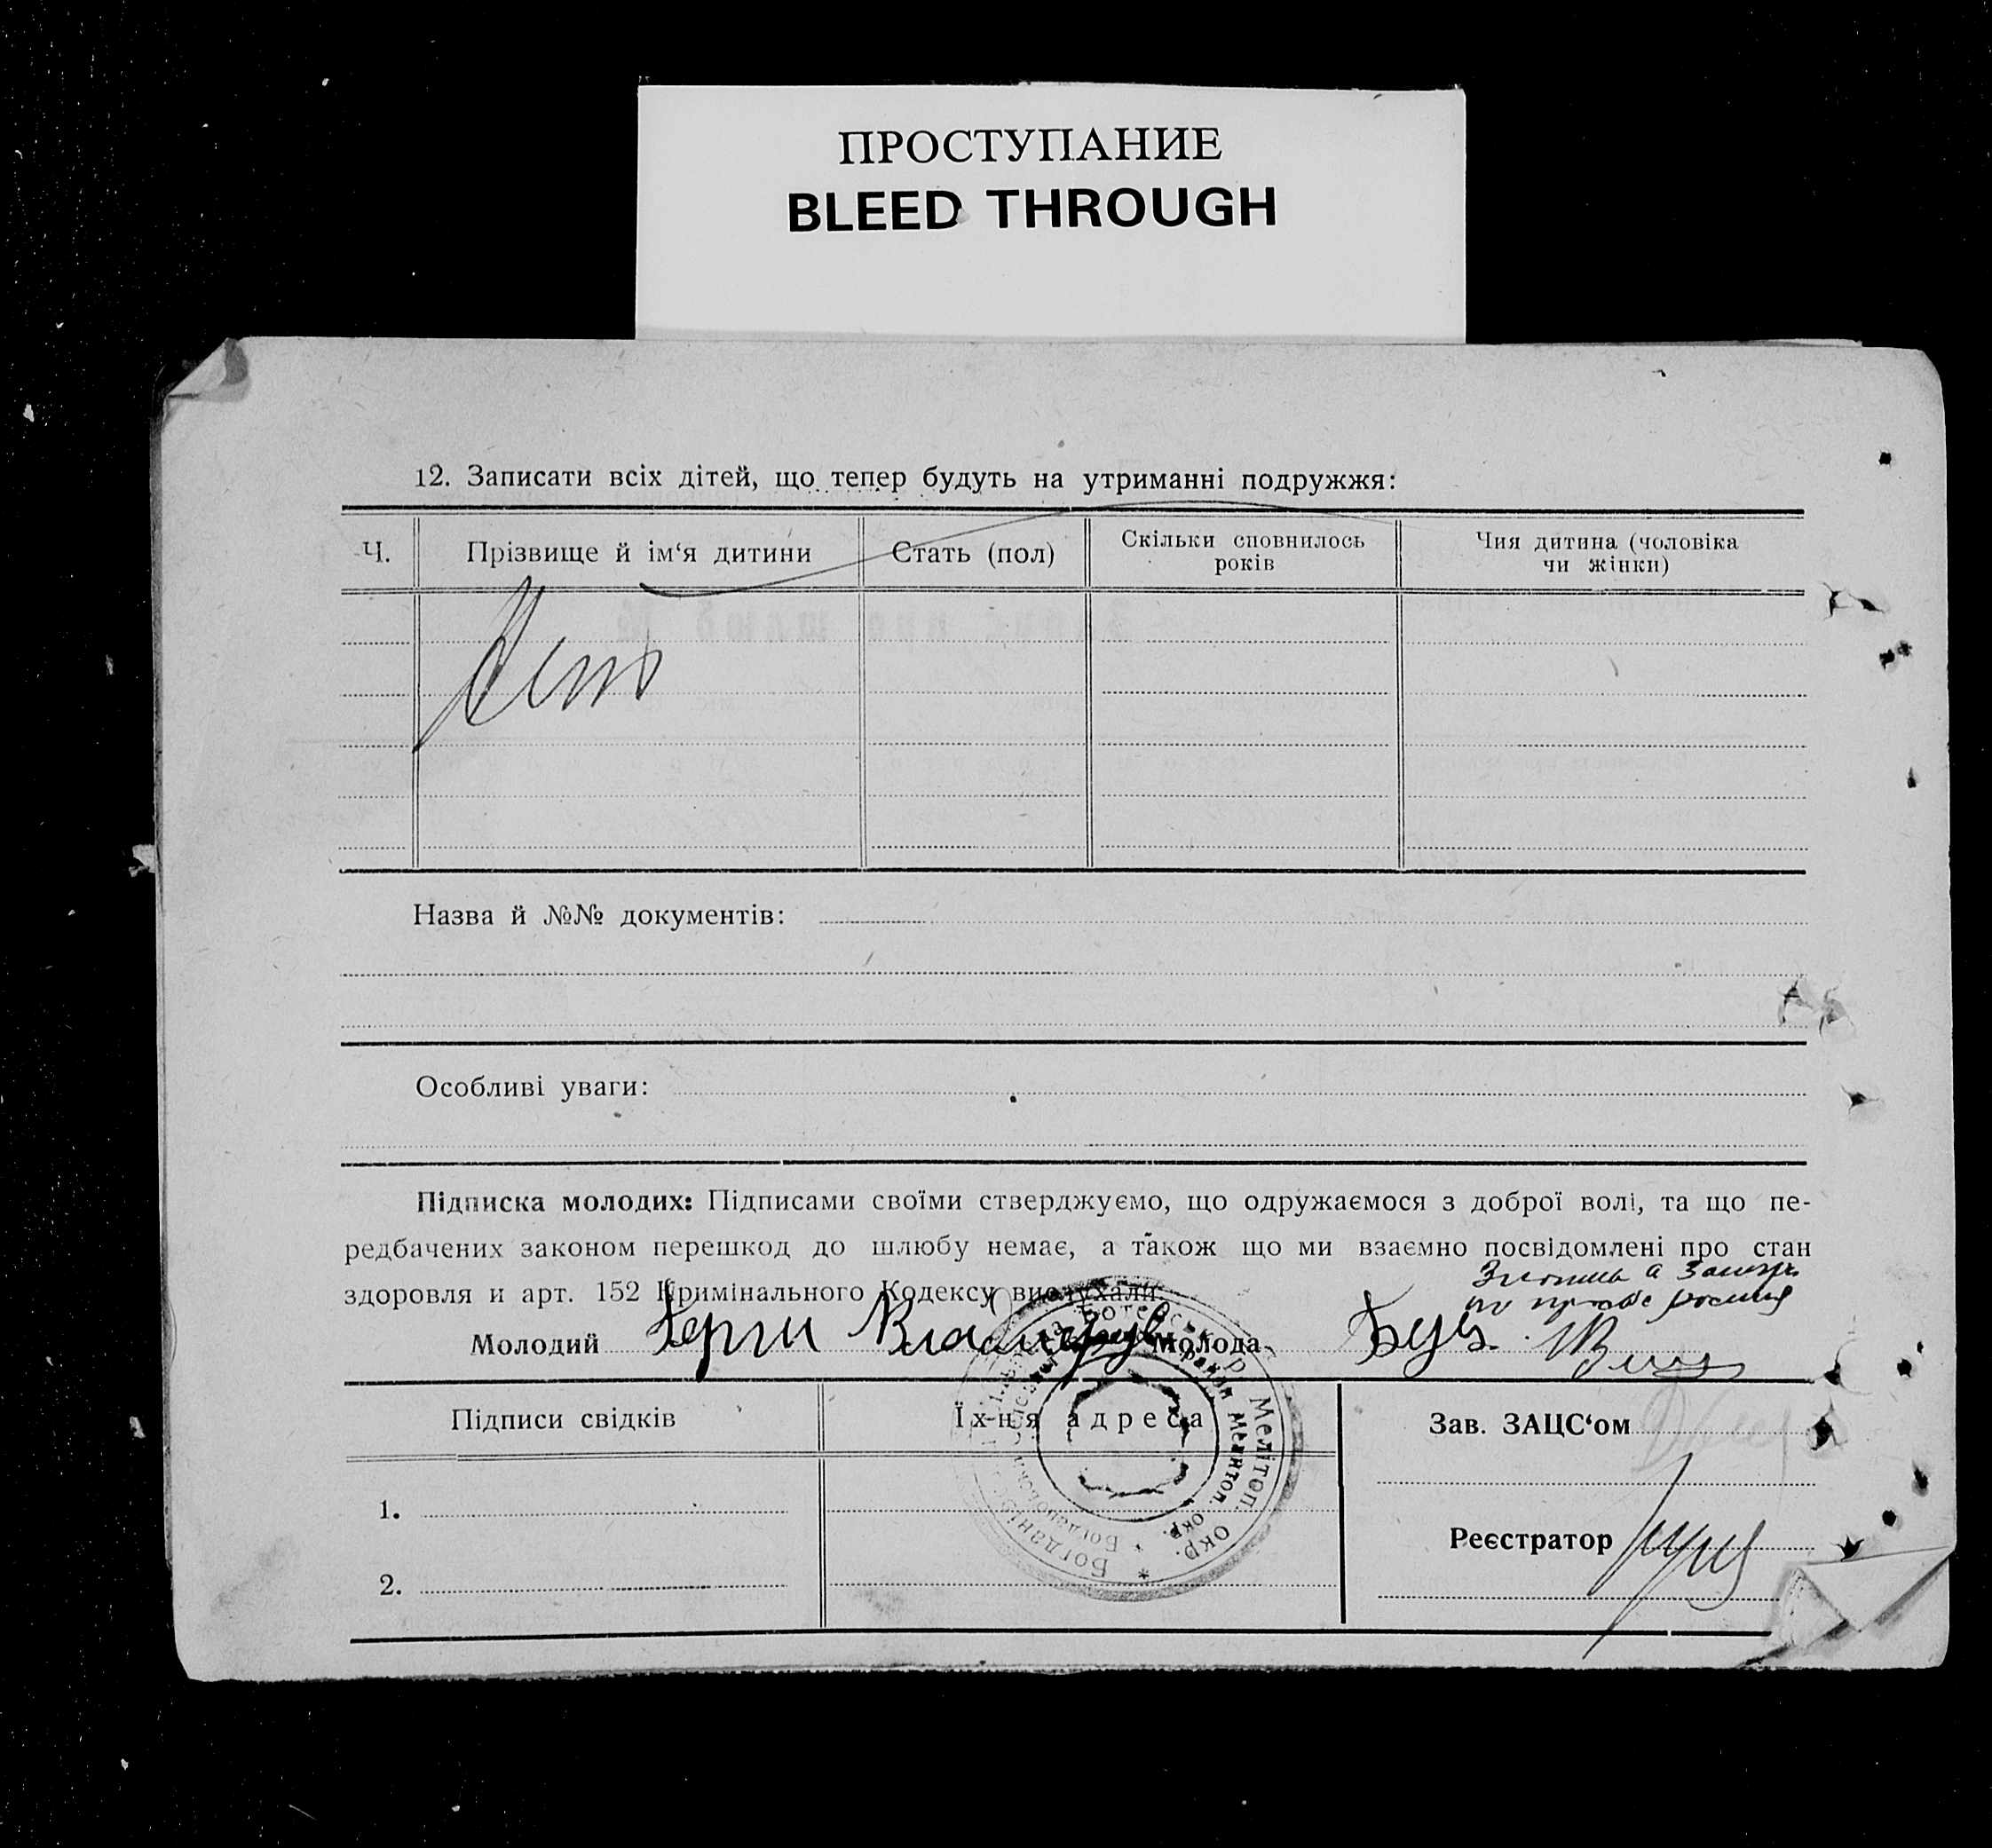 ПРОСТУПАНИЕ
BLEED THROUGH
12. Записати всіх дітей, що тепер будуть на утриманні подружжя:
Ч.
Прізвище й ім‘я дитини
Стать (пол)
Скільки сповнилось
років
Чия дитина (чоловіка
чи жінки)
Назва й №№ документів:
Особливі уваги:
Підписка молодих: Підписами своїми стверджуємо, що одружаємося з доброї волі, та що пе-
редбачених законом перешкод до шлюбу немає, а також що ми взаємно посвідомлені про стан
здоровля и арт. 152 Кримінального Кодексу вислухали:
Молодий
Молода
Підписи свідків
Їх-ня адреса
Зав. ЗАЦС‘ом
1.
Реєстратор
2.
Мелітоп. окр.